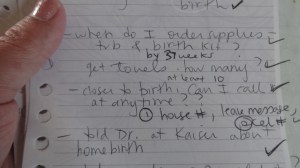 birth ✓
- when do I order supplies -
tub & birth kit? ✓
by 37 weeks
get towels - how many?
at least 10 ✓
- closer to birth, can I call
at anytime? ✓
① house #, leave message,
② cel # ✓
- told Dr. at Kaiser about
homebirth ✓